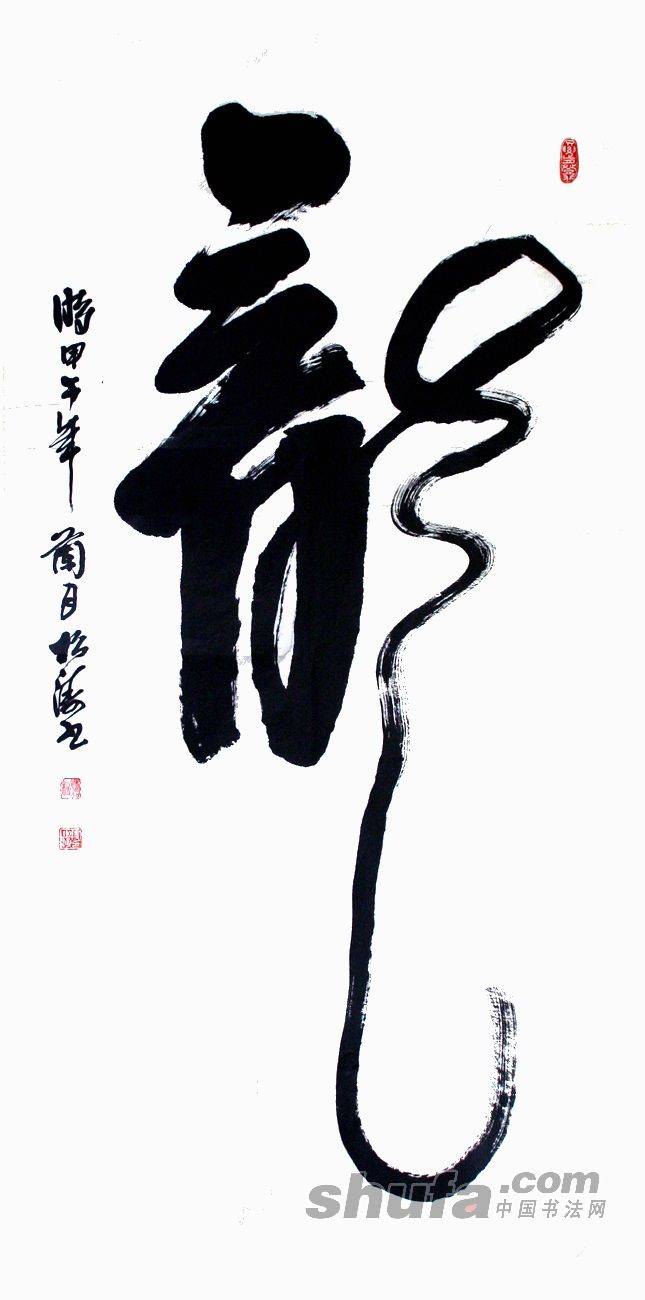 龍
時甲午年 蘭月 松濤书
shufa.com
中国书法网